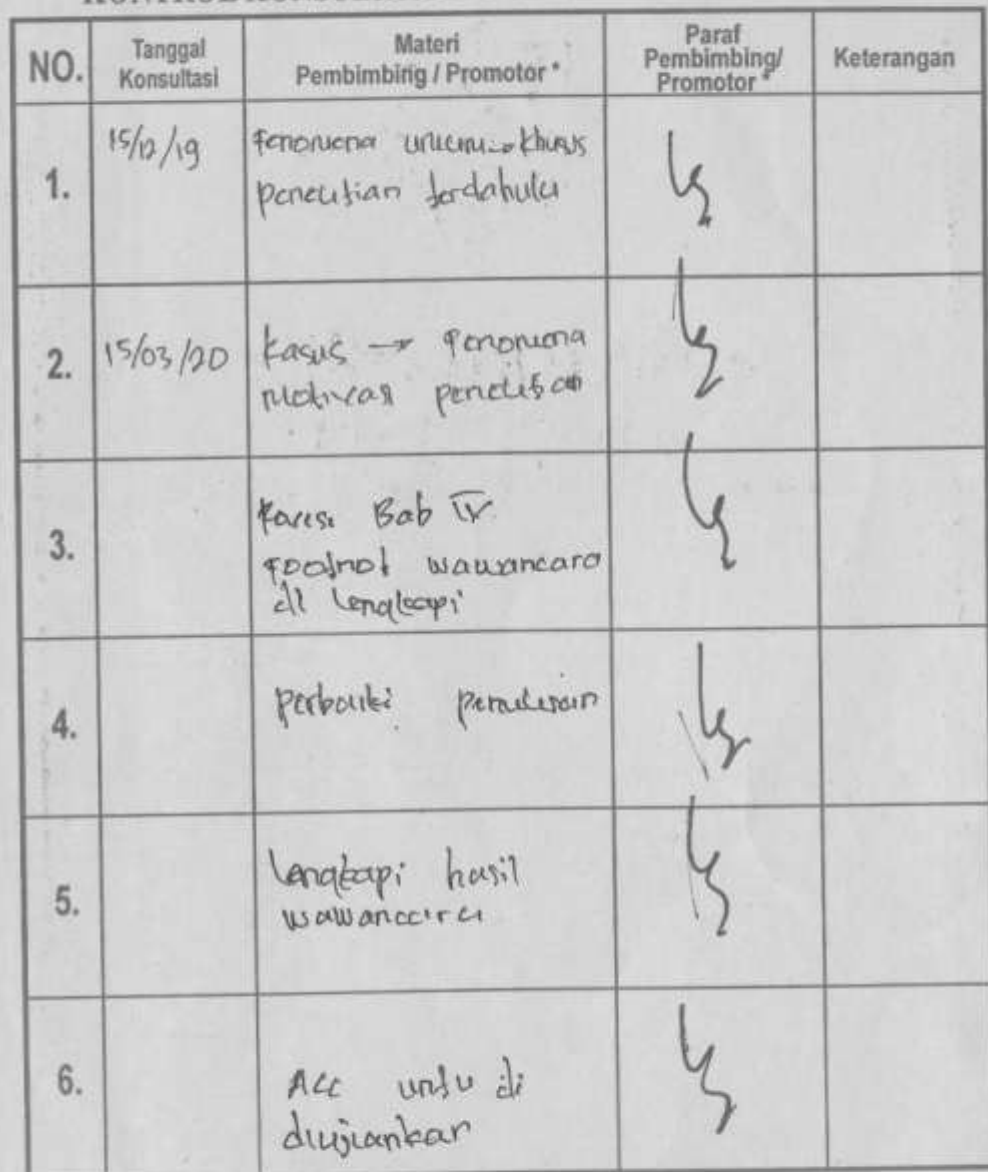 NO.
Tanggal
Konsultasi
Materi
Pembimbing / Promotor *
Paraf
Pembimbing/
Promotor *
Keterangan
1.
15/12/19
Fenomena umum → khusus
penelitian terdahulu
2.
15/03/20
kasus → Fenomena
Motivasi penelitian
3.
Bab IV
footnot wawancara
di lengkapi
4.
perbaiki penulisan
5.
lengkapi hasil
wawancara
6.
ACC untu di
diujiankan